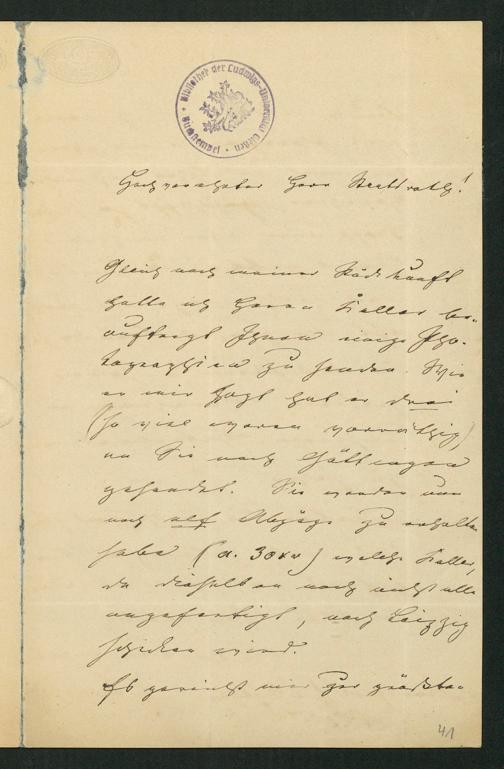 Bibliothek der Ludwigs-Universität Gießen
Buchstempel
Hochverehrter Herr
Gleich nach meiner Rückkunft
hatte ich Herrn Keller be-
auftragt Ihnen einige Pho-
tographien zu senden. Wie
er mir sagt hat er drei
(so viel waren vorräthig)
an Sie nach Göttingen
gesendet. Sie werden nun
noch elf Abzüge zu erhalten
haben (a. 30 xr) welche Keller,
da dieselben noch nicht alle
angefertigt, nach Leipzig
schicken wird.
Es gereicht mir zur größten
41